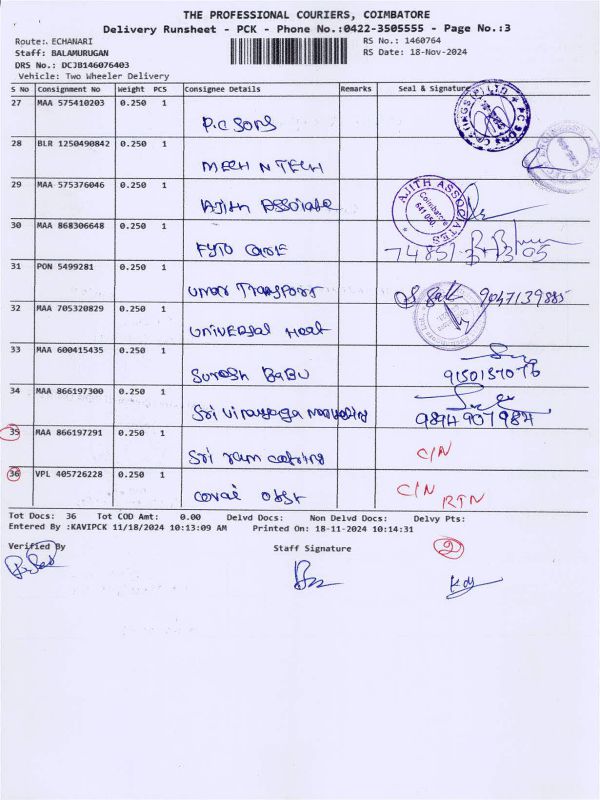 THE PROFESSIONAL COURIERS, COIMBATORE
Delivery Runsheet - PCK - Phone No.:0422-3505555 - Page No.:3
Route: ECHANARI RS No.: 1460764
Staff: BALAMURUGAN RS Date: 18-Nov-2024
DRS No.: DCJB146076403
Vehicle: Two Wheeler Delivery
S No Consignment No Weight PCS Consignee Details Remarks Seal & Signature
27 MAA 575410203 0.250 1
P.C SONS
28 BLR 1250490842 0.250 1
MECH N TECH
29 MAA 575376046 0.250 1
Ajith Associate
AJITH ASSOCIATES
Coimbatore
641 050.
30 MAA 868306648 0.250 1
FYTO CARE
31 PON 5499281 0.250 1
Umar Transport 9047139885
32 MAA 705320829 0.250 1
Universal Heat
33 MAA 600415435 0.250 1
Suresh Babu 9150157076
34 MAA 866197300 0.250 1
Sri Vinayaga 9894907984
35 MAA 866197291 0.250 1
Sri ram C/N
36 VPL 405726228 0.250 1
C/N
RTN
Tot Docs: 36 Tot COD Amt: 0.00 Delvd Docs: Non Delvd Docs: Delvy Pts:
Entered By :KAVIPCK 11/18/2024 10:13:09 AM Printed On: 18-11-2024 10:14:31
Verified By Staff Signature 2